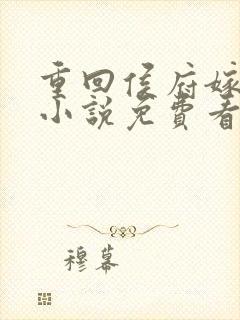 重回侯府嫁
小説免費看
穆幕